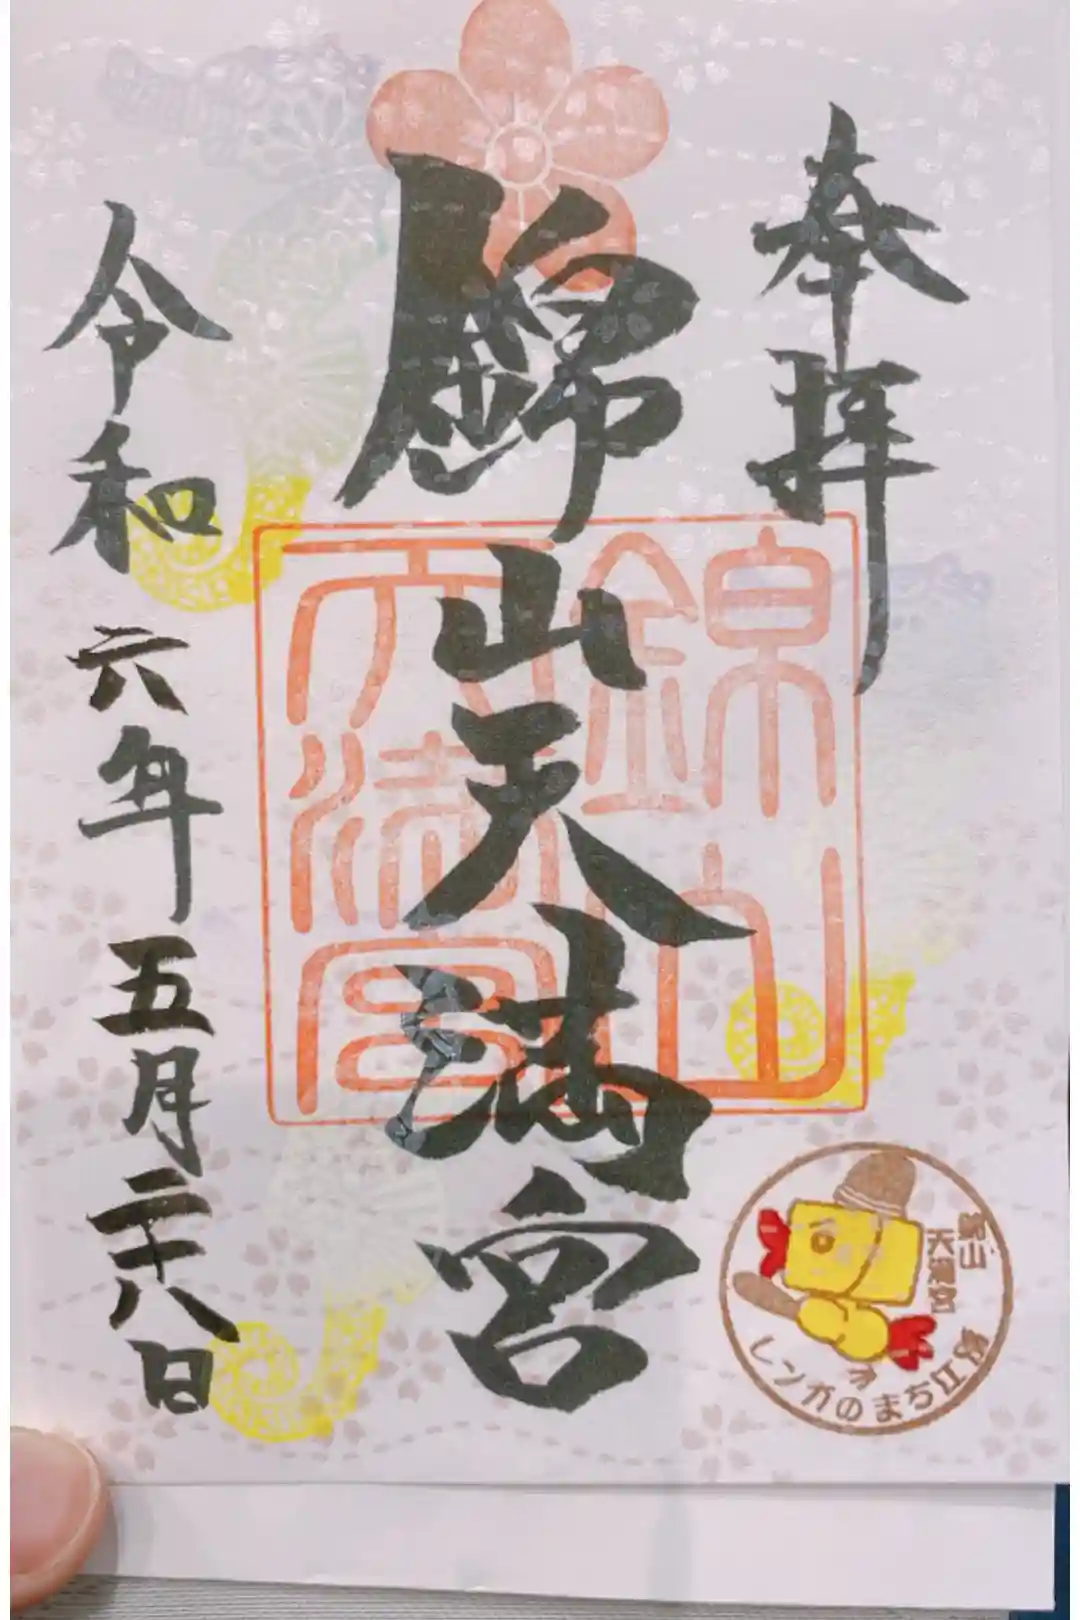 奉拝
錦山天満宮
令和六年五月二十八日
錦山
天満宮
錦山
天満宮
レンガのまち江別